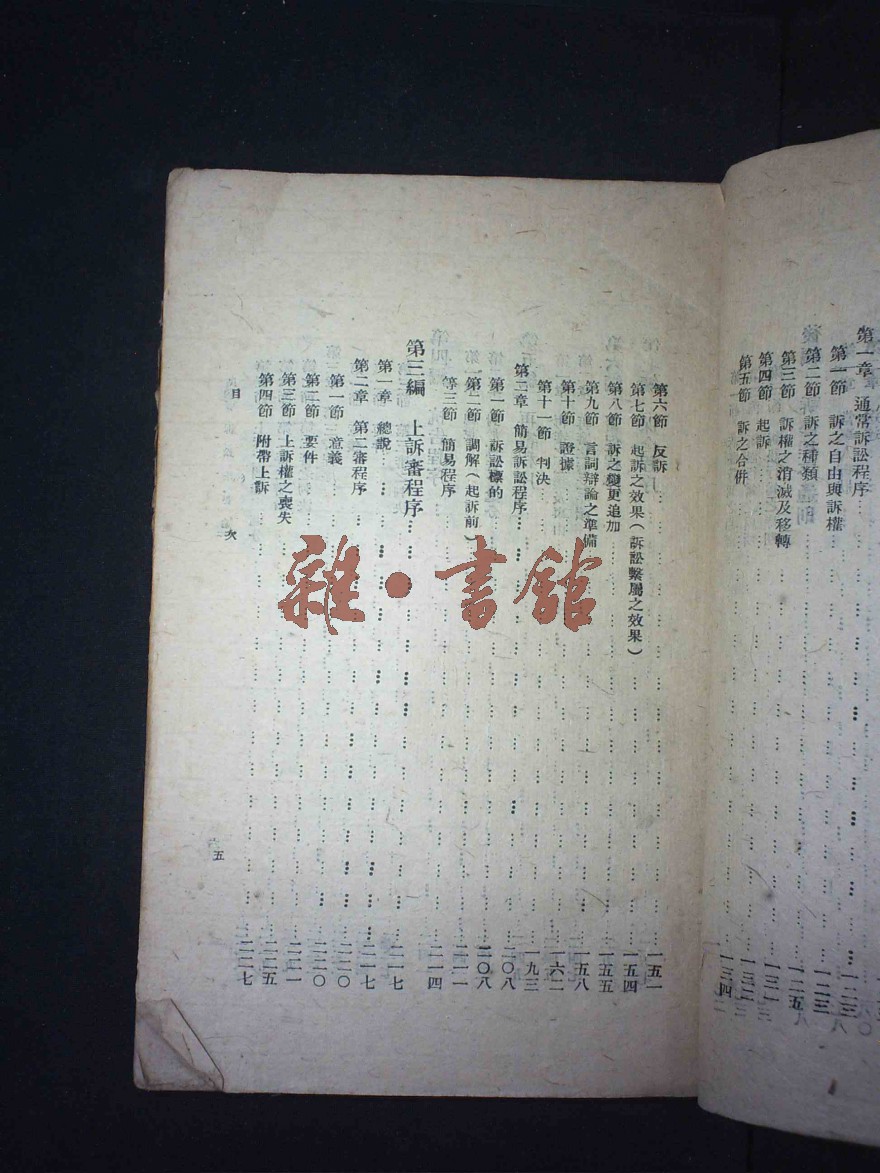 第一章 通常訴訟程序……一二三
第一節 訴之自由與訴權……一二三
第二節 訴之種類……一二五
第三節 訴權之消滅及移轉……一三一
第四節 起訴……一三二
第五節 訴之合併……一三四
第六節 反訴……一五一
第七節 起訴之效果(訴訟繫屬之效果)……一五四
第八節 訴之變更追加……一五五
第九節 言詞辯論之準備……一五八
第十節 證據……一六二
第十一節 判決……一九三
第二章 簡易訴訟程序……二〇八
第一節 訴訟標的……二〇八
第二節 調解(起訴前)……二一一
第三節 簡易程序……二一四
第三編 上訴審程序……二一七
第一章 總說……二一七
第二章 第二審程序……二二〇
第一節 意義……二二〇
第二節 要件……二二一
第三節 上訴權之喪失……二二五
第四節 附帶上訴……二二七
目 次
五
雜·書館